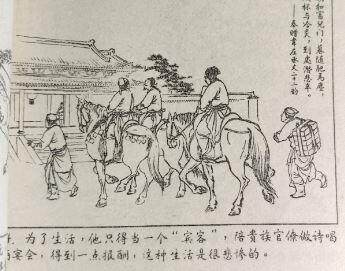 富兒门，暮随肥马塵，
杯与冷炙，到处潜悲辛。
——奉赠韦左丞丈二十二韵
为了生活，他只得当一个“宾客”，陪贵族官僚做诗喝
宴会，得到一点报酬，这种生活是很悲惨的。